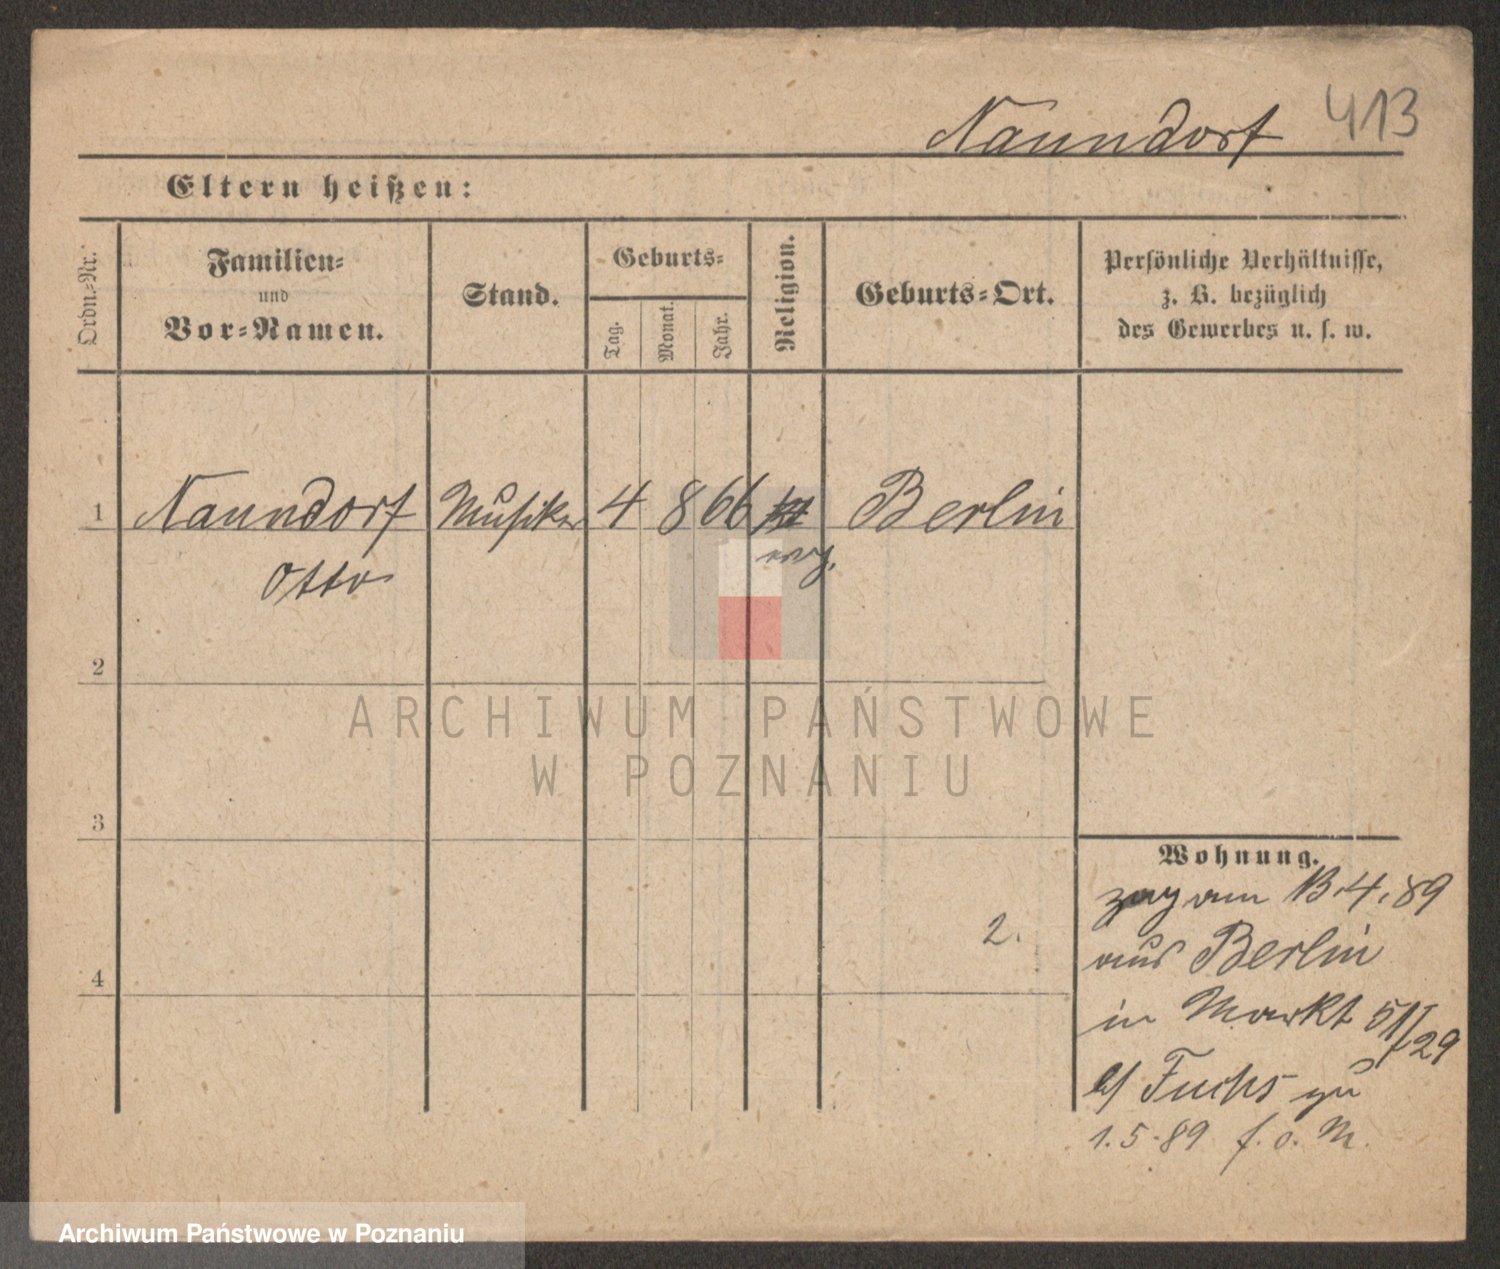 Naundorf 413
Eltern heißen:
Ordn.-Nr.
Familien-
und
Vor-Namen.
Stand.
Geburts-
Tag.
Monat.
Jahr.
Religion.
Geburts-Ort.
Persönliche Verhältnisse,
z. B. bezüglich
des Gewerbes u. s. w.
1 Naundorf Musiker 4 8 66 Berlin
Otto evg.
2
3
4
ARCHIWUM PAŃSTWOWE
W POZNANIU
Wohnung.
zog am 13.4.89
aus Berlin
in Markt 51/I
29
b/ Fuchs zu
1.5.89 f. o. M.
2.
Archiwum Państwowe w Poznaniu